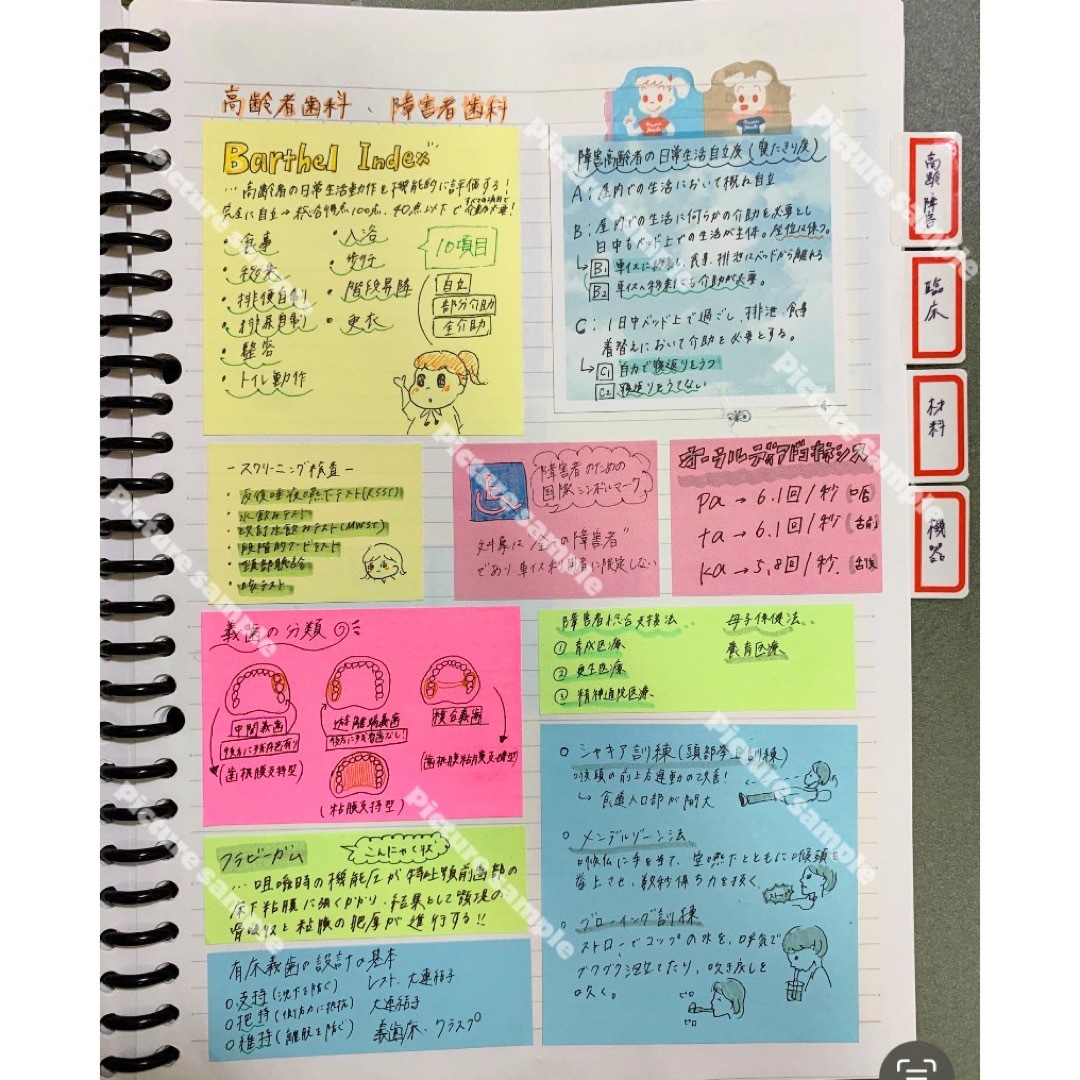 高齢者歯科、障害者歯科
Barthel Index
…高齢者の日常生活動作を機能的に評価する!
完全に自立→総合得点100点、40点以下で 介助が必要!
・食事
・移乗
・排便自制
・排尿自制
・整容
・トイレ動作
・入浴
・歩行
・階段昇降
・更衣
10項目
自立
部分介助
全介助
障害高齢者の日常生活自立度(寝たきり度)
A:屋内での生活において概ね自立
B:屋内での生活に何らかの介助を必要とし
日中もベッド上での生活が主体。座位は保つ。
→B1 車イスに移乗し、食事、排泄はベッドから離れる
B2 車イス移乗にも介助が必要。
C:1日中ベッド上で過ごし、排泄、食事
着替えにおいて介助を必要とする。
→C1 自力で寝返りをうつ
C2 寝返りをうてない
高齢 障害
臨床
材料
機器
-スクリーニング検査-
・反復唾液嚥下テスト(RSST)
・水飲みテスト
・改訂水飲みテスト(MWST)
・段階的フードテスト
・頸部聴診
・咳テスト
障害者のための
国際シンボルマーク
対象は全ての障害者
であり、車イス利用者に限定しない
オーラルディアドコキネシス
pa→6.1回/秒(口唇)
ta→6.1回/秒(舌前)
ka→5.8回/秒.(舌後)
義歯の分類
中間義歯
後方に残存歯有り
(歯根膜支持型)
遊離端義歯
後方に残存歯なし!
(粘膜支持型)
複合義歯
(歯根膜粘膜支持型)
障害者総合支援法
①育成医療
②更生医療
③精神通院医療
母子保健法
養育医療
フラビーガム
こんにゃく状
…咀嚼時の機能圧が特に上顎前歯部の
床下粘膜に強くかかり、結果として顎堤の
骨吸収と粘膜の肥厚が進行する!!
有床義歯の設計の基本
○支持(沈下を防ぐ) レスト、大連結子
○把持(側方力に抵抗) 大連結子
○維持(離脱を防ぐ) 義歯床、クラスプ
○シャキア訓練(頭部挙上訓練)
喉頭の前上方運動の改善!
↳食道入口部が開大
○メンデルゾーン法
喉仏に手を当て、空嚥下とともに喉頭を
挙上させ、数秒保ち力を抜く。
○ブローイング訓練
ストローでコップの水を、呼気で
ブクブク泡立てたり、吹き戻しを
吹く。
ピロ
ピロ
Picture sample
Picture sample
Picture sample
Picture sample
Picture sample
Picture sample
Picture sample
Picture sample
Picture sample